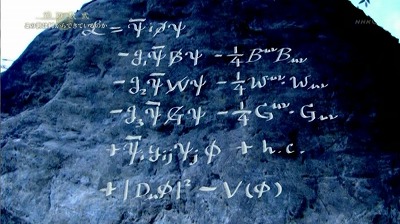 ℒ = ψ̄ i∂̸ ψ
- g₁ ψ̄ B̸ ψ - ¼ B^{μν} B_{μν}
- g₂ ψ̄ W̸ ψ - ¼ W^{μν} · W_{μν}
- g₃ ψ̄ G̸ ψ - ¼ G^{μν} · G_{μν}
+ ψ̄ᵢ yᵢⱼ ψⱼ ϕ + h.c.
+ |D_μ ϕ|² - V(ϕ)
NHK